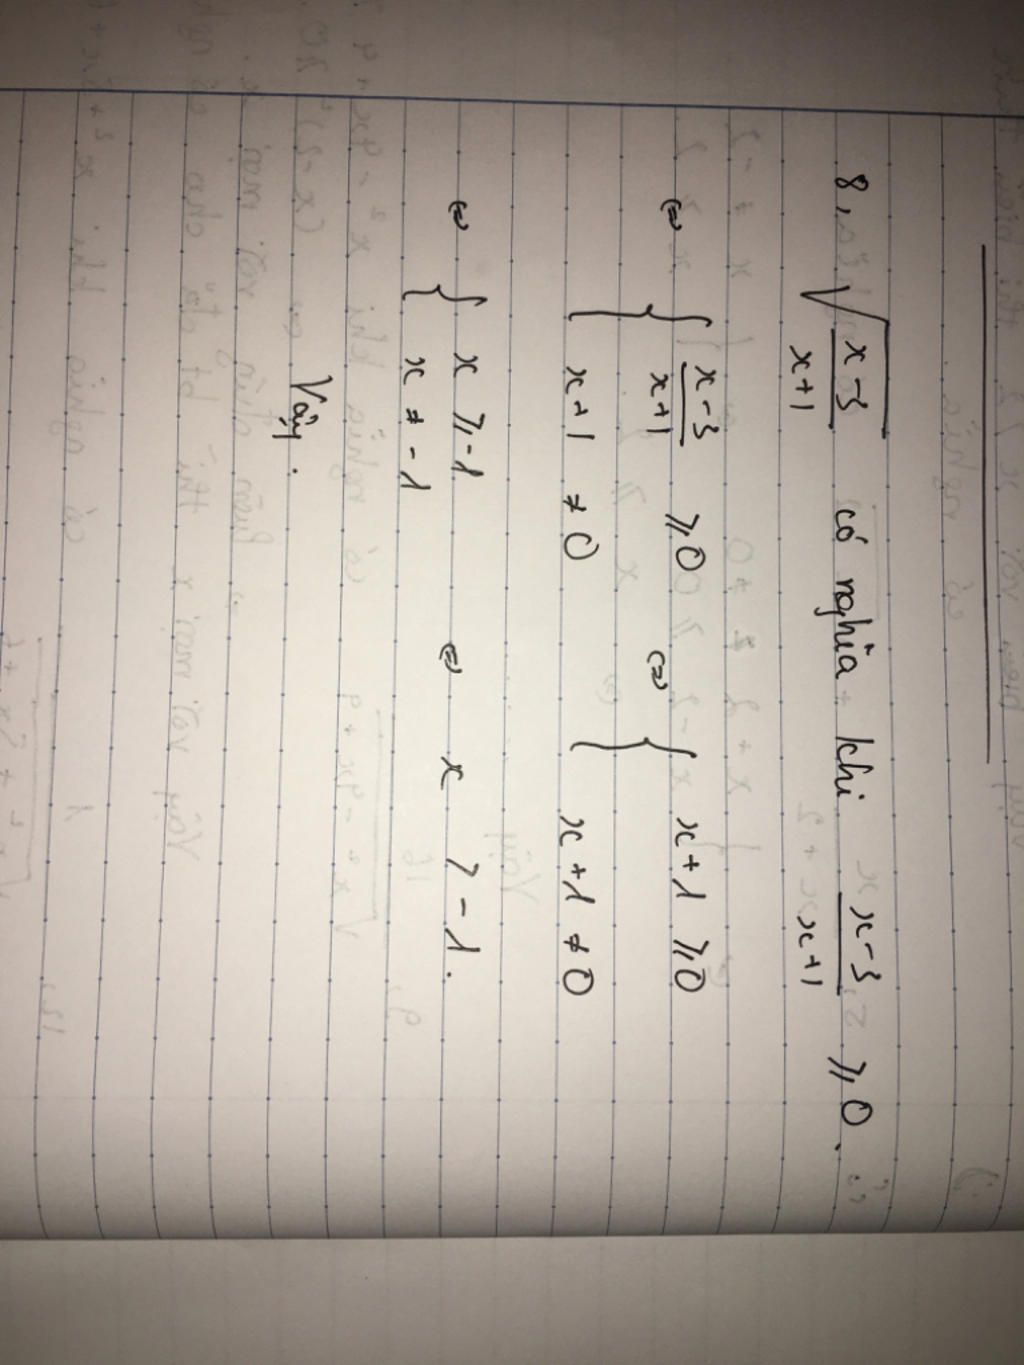 8, √(x-3 / x+1) có nghĩa khi x-3 / x+1 ⩾ 0.
⇔ { x-3 / x+1 ⩾ 0 ⇔ { x+1 ⩾ 0
x+1 ≠ 0 x+1 ≠ 0
⇔ { x ⩾ -1 ⇔ x > -1.
x ≠ -1
Vậy.